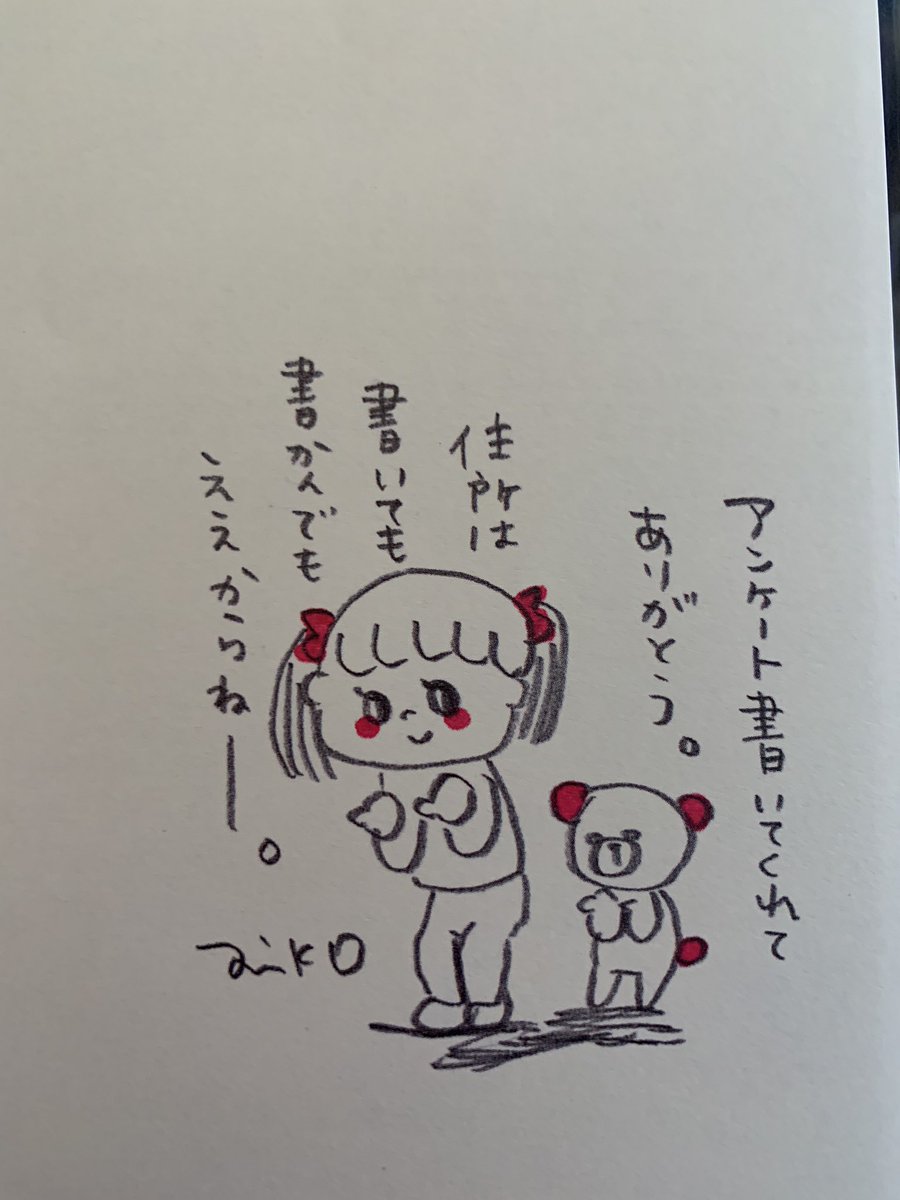 アンケート書いてくれて
ありがとう。
住所は
書いても
書かんでも
ええからねー。
aiko